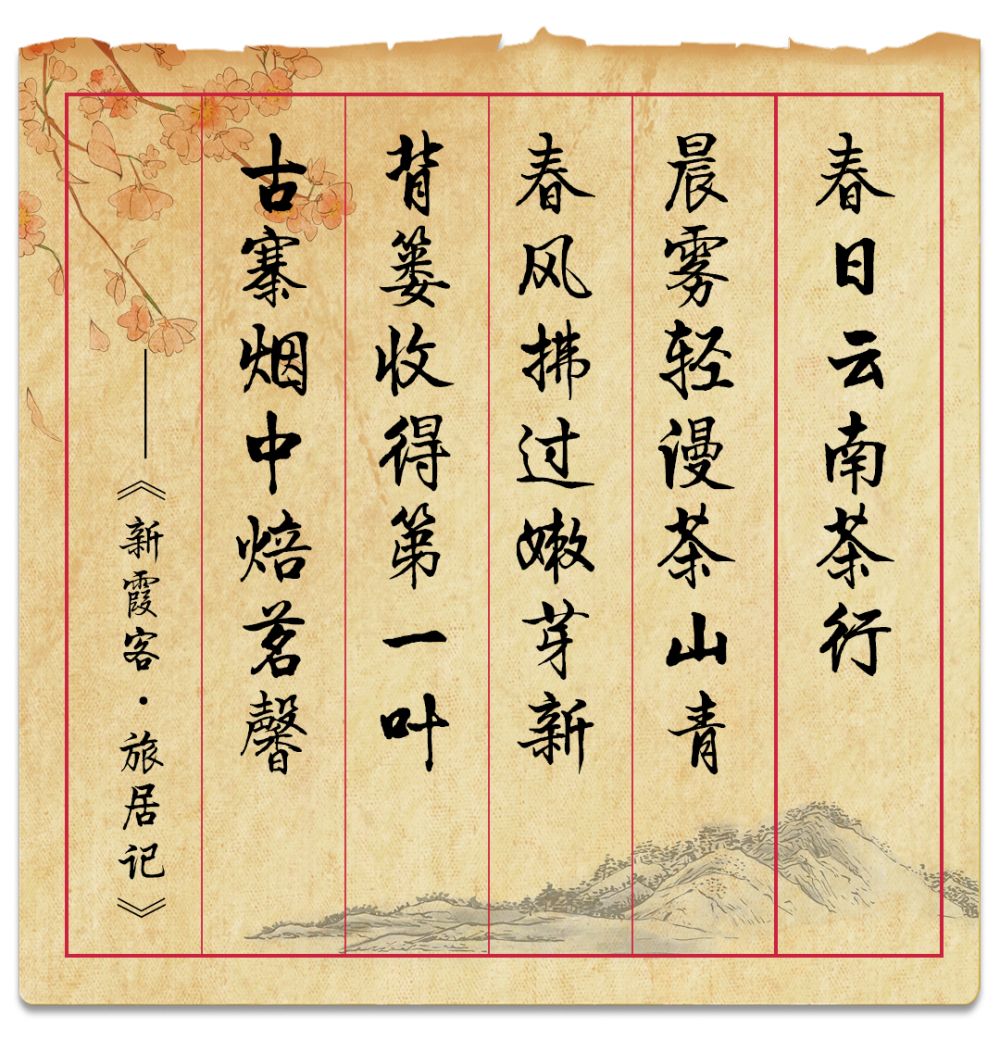 春日云南茶行
晨雾轻漫茶山青
春风拂过嫩芽新
背篓收得第一叶
古寨烟中焙茗馨
——《新霞客·旅居记》